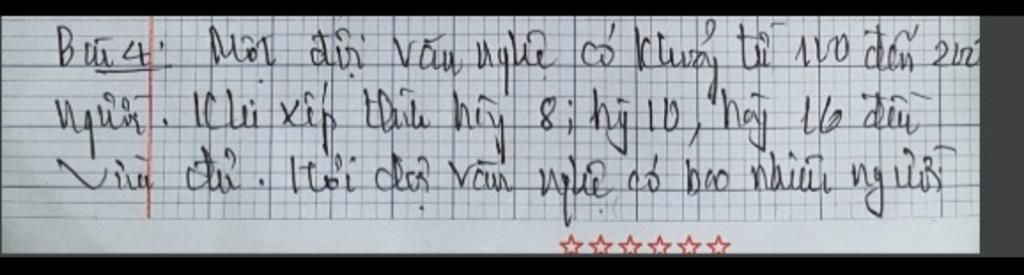 Bài 4: Một đội văn nghệ có khoảng từ 100 đến 200
người. Khi xếp thành hàng 8; hàng 10, hàng 16 đều
vừa đủ. Hỏi đội văn nghệ có bao nhiêu người